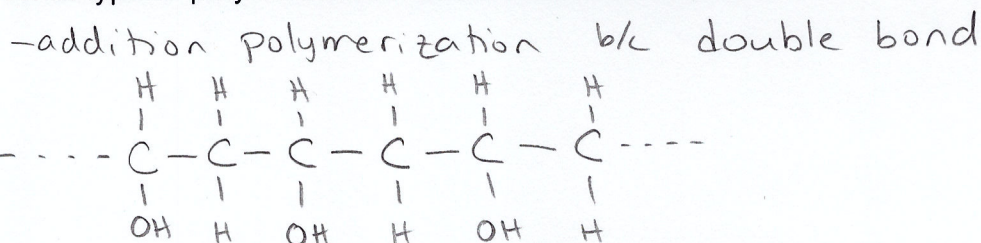 -addition polymerization b/c double bond
H H H H H H
---- C - C - C - C - C - C ----
OH H OH H OH H